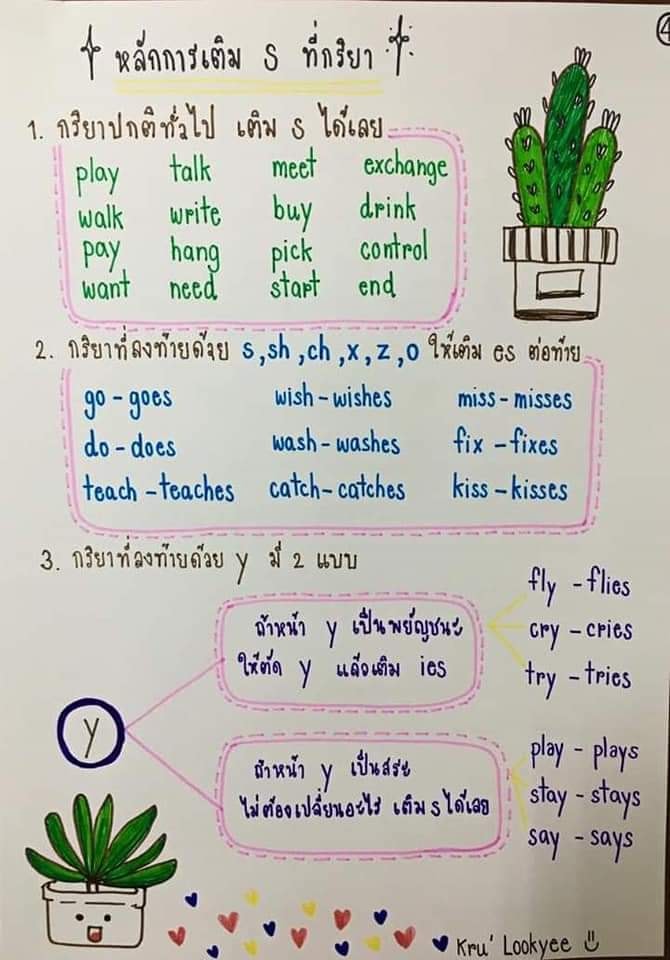 4
หลักการเติม S ที่กริยา
1. กริยาปกติทั่วไป เติม s ได้เลย
play talk meet exchange
walk write buy drink
pay hang pick control
want need start end
2. กริยาที่ลงท้ายด้วย s, sh, ch, x, z, o ให้เติม es ต่อท้าย
go - goes wish - wishes miss - misses
do - does wash - washes fix - fixes
teach - teaches catch - catches kiss - kisses
3. กริยาที่ลงท้ายด้วย y มี 2 แบบ
y
ถ้าหน้า y เป็นพยัญชนะ
ให้ตัด y แล้วเติม ies
fly - flies
cry - cries
try - tries
ถ้าหน้า y เป็นสระ
ไม่ต้องเปลี่ยนอะไร เติม s ได้เลย
play - plays
stay - stays
say - says
Kru' Lookyee